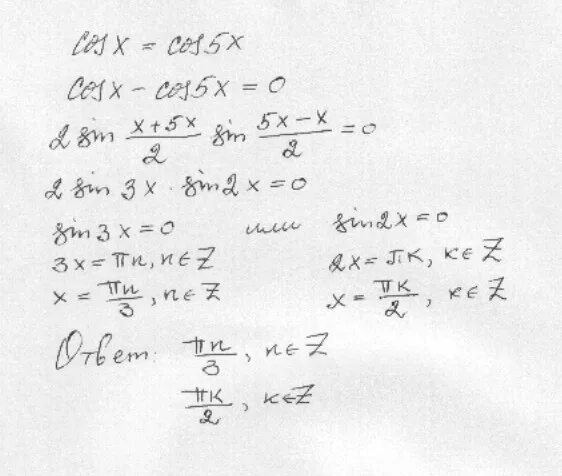 cos x = cos 5x
cos x - cos 5x = 0
2 sin (x+5x)/2 sin (5x-x)/2 = 0
2 sin 3x · sin 2x = 0
sin 3x = 0 или sin 2x = 0
3x = πn, n∈Z 2x = πк, к∈Z
x = πn/3, n∈Z x = πк/2, к∈Z
Ответ: πn/3, n∈Z
πк/2, к∈Z